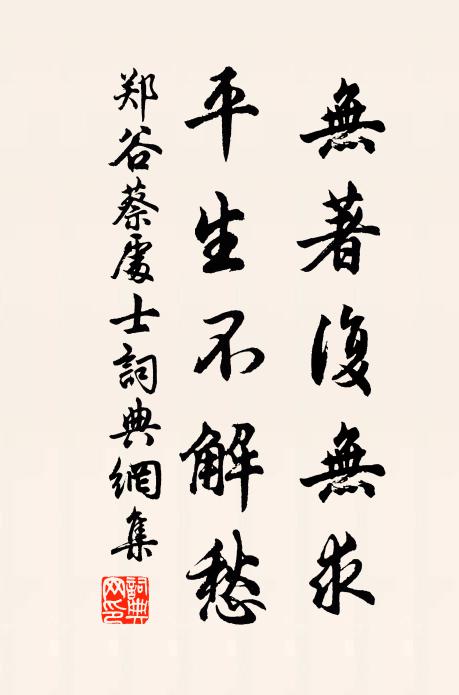 無著復無求
平生不解愁
郑谷蔡處士詞典網集
詞典网印